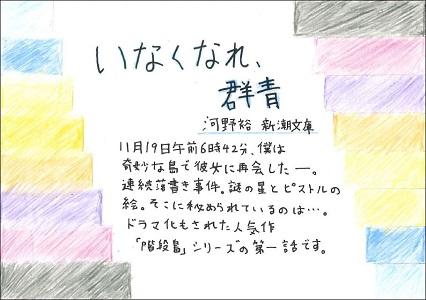 いなくなれ、
群青
河野裕 新潮文庫
11月19日午前6時42分、僕は
奇妙な島で彼女に再会した—。
連続落書き事件。謎の星とピストルの
絵。そこに秘められているのは…。
ドラマ化もされた人気作
「階段島」シリーズの第一話です。